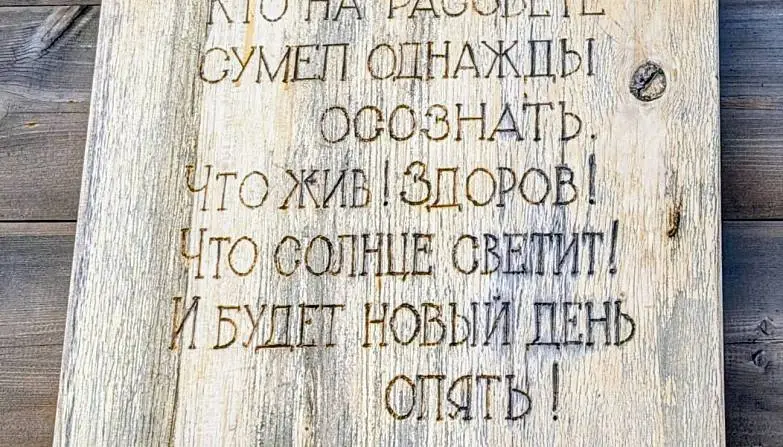 КТО НА РАССВЕТЕ
СУМЕЛ ОДНАЖДЫ
ОСОЗНАТЬ.
ЧТО ЖИВ! ЗДОРОВ!
ЧТО СОЛНЦЕ СВЕТИТ!
И БУДЕТ НОВЫЙ ДЕНЬ
ОПЯТЬ!